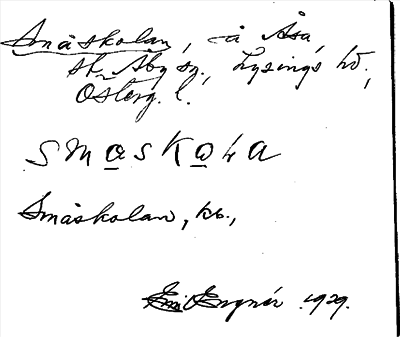 Småskolan, å Åsa,
st. Åby sn., Lysings hd.,
Österg. l.
SMaSKoLa
Småskolan, kb.,
Engnér 1929.